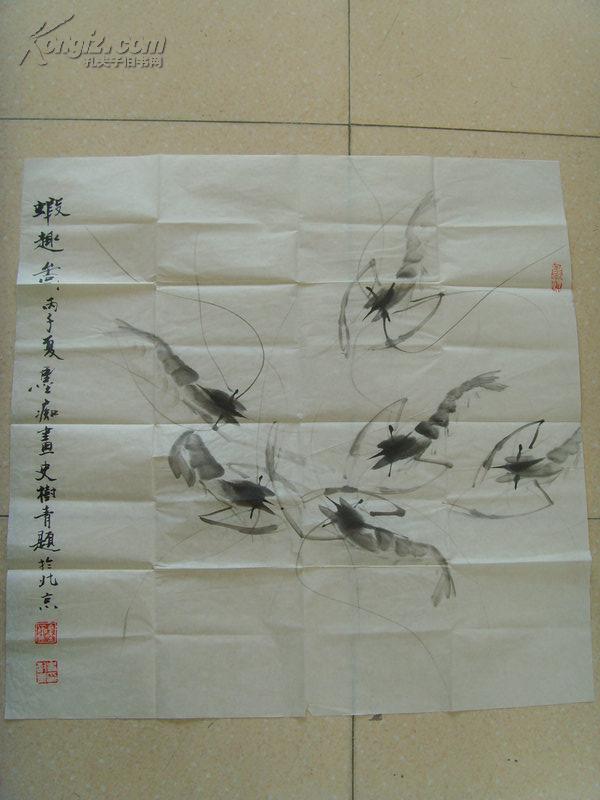 Kongfz.com
孔夫子旧书网
蝦趣 丙子夏墨痴畫史樹青題於北京